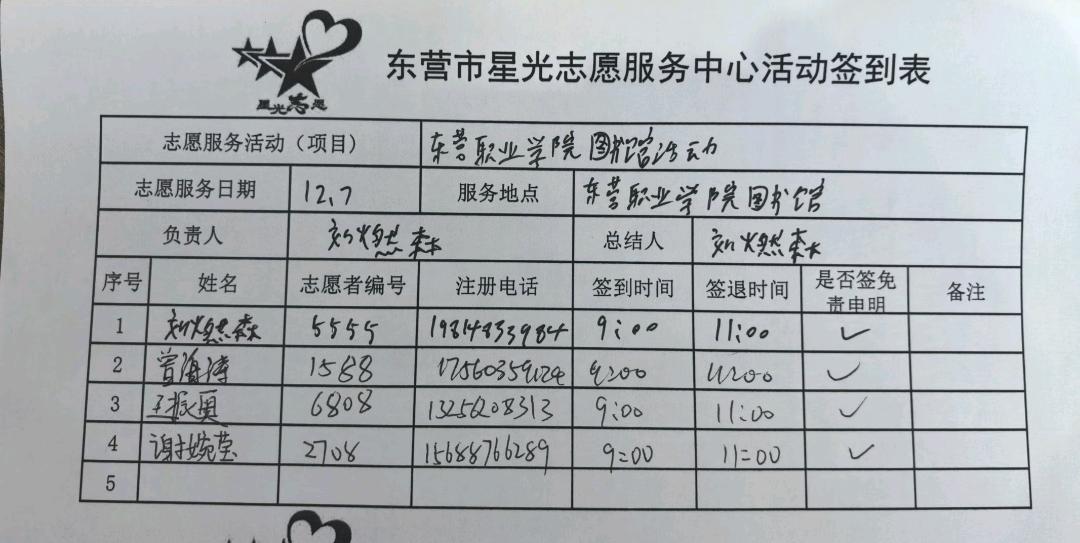 星光志愿
东营市星光志愿服务中心活动签到表
志愿服务活动（项目） 东营职业学院图书馆活动
志愿服务日期 12.7 服务地点 东营职业学院图书馆
负责人 刘燃森 总结人 刘燃森
序号 姓名 志愿者编号 注册电话 签到时间 签退时间 是否签免责申明 备注
1 刘燃森 5555 19814833984 9:00 11:00 ✓
2 1588 9:00 11:00 ✓
3 6808 13256208313 9:00 11:00 ✓
4 谢婉莹 2708 15688766289 9:00 11:00 ✓
5